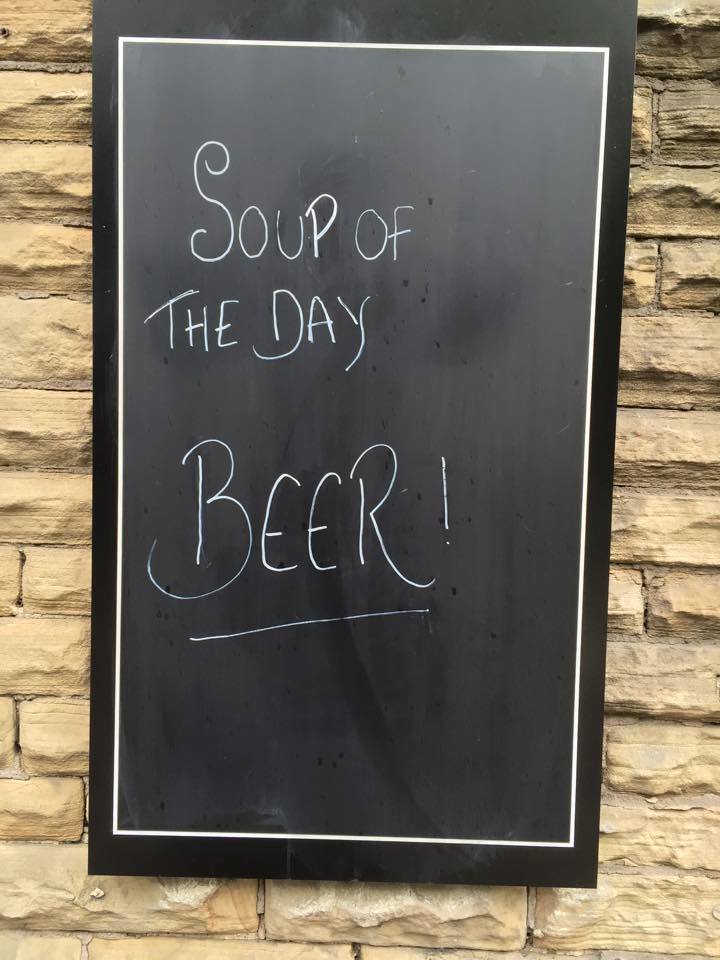 SOUP OF
THE DAY
BEER!